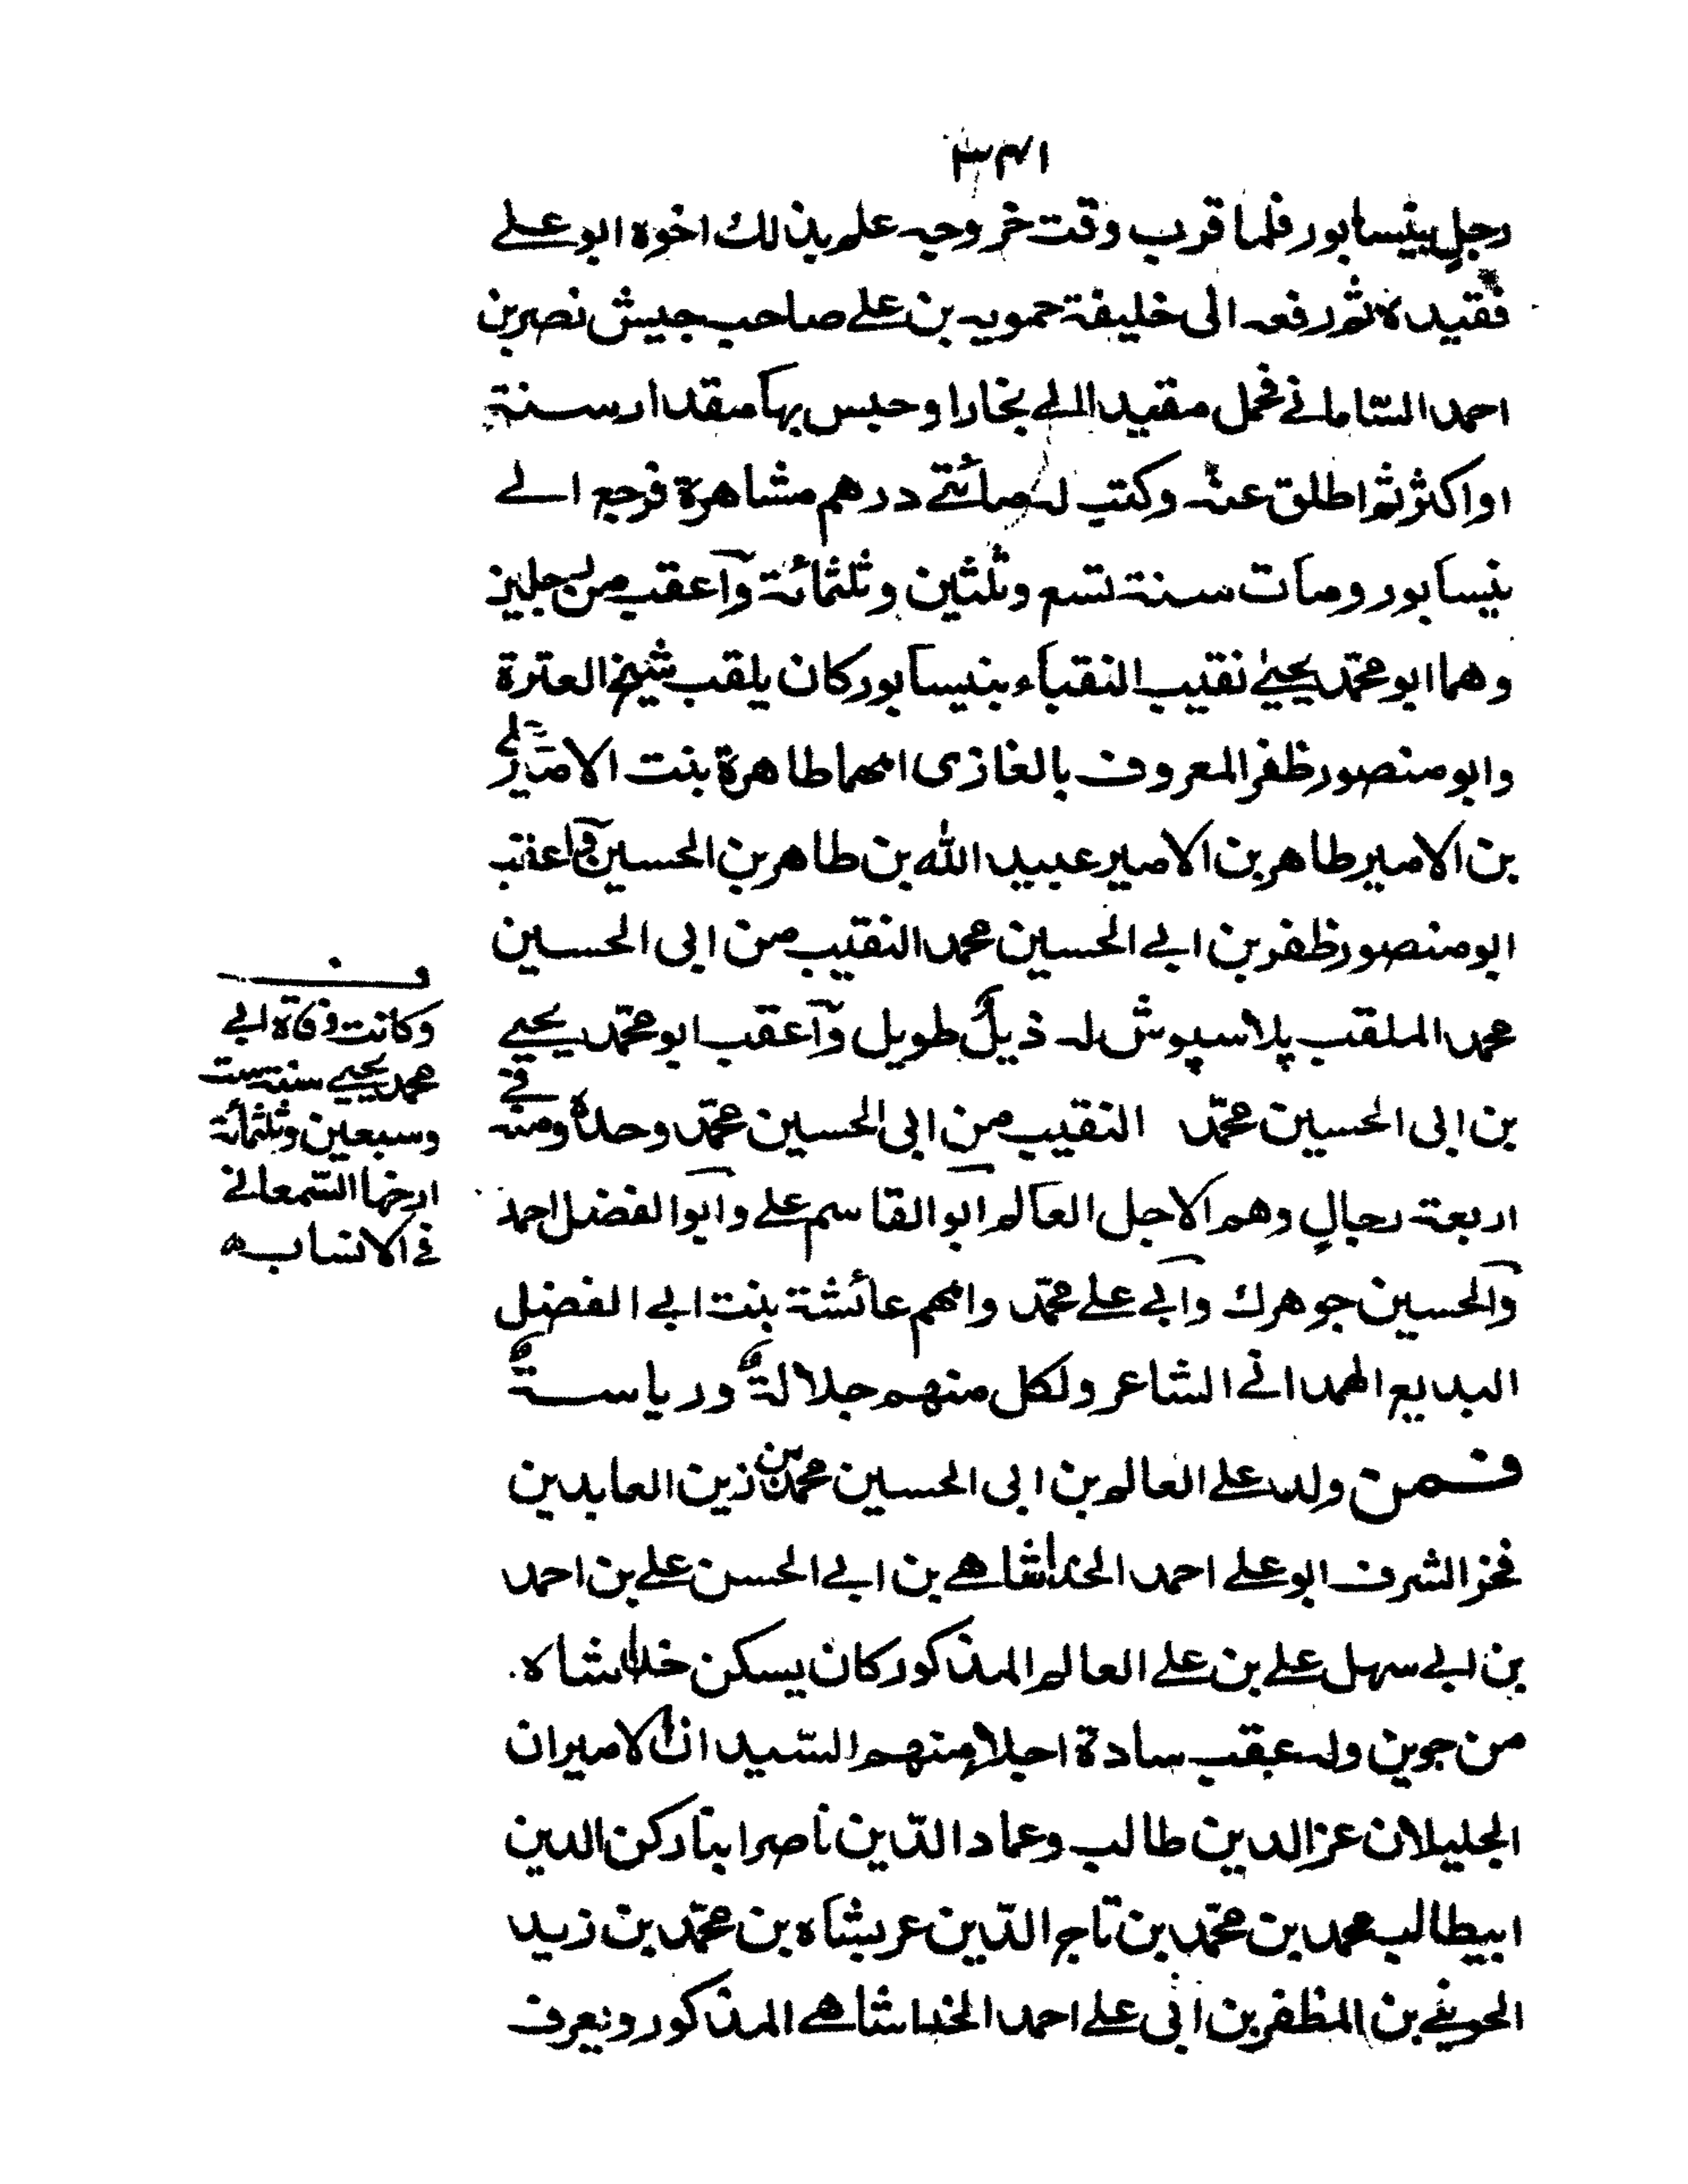 ٣٤١
رجلٍ بنيسابور فلما قرب وقت خروجه علم بذلك اخوه ابو على
فقيده ثم رفعه الى خليفة حمويه بن على صاحب جيش نصر بن
احمد السّامانى فحمل مقيدا الى بخارا وحبس بها مقدار سنة
او اكثر ثم اطلق عنه وكتب له مائتى درهم مشاهرة فرجع الى
نيسابور ومات سنة تسع وثلثين وثلثمائة وآعقب من رجلين
وهما ابو محمّد يحيى نقيب النقباء بنيسابور كان يلقب شيخ العترة
وابو منصور ظفر المعروف بالغازى امهما طاهرة بنت الامير على
بن الامير طاهر بن الامير عبيد الله بن طاهر بن الحسين فاعقب
ابو منصور ظفر بن ابى الحسين محمد النقيب من ابى الحسين
محمد الملقب پلاسپوش له ذيلٌ طويل وآعقب ابو محمّد يحيى
بن ابى الحسين محمّد النقيب من ابى الحسين محمّد وحده ومنه فى
اربعة رجالٍ وهم الاجل العالم ابو القاسم على وابو الفضل احمد
والحسين جوهرك وابى على محمّد وامهم عائشة بنت ابى الفضل
البديع الهمدانى الشاعر ولكل منهم جلالةٌ ورياسةٌ
فمن ولد على العالم بن ابى الحسين محمد بن زين العابدين
فخر الشرف ابو على احمد الخداشاهى بن ابى الحسن على بن احمد
بن ابى سهل على بن على العالم المذكور كان يسكن خداشاه
من جوين وله عقب سادة اجلاء منهم السّيدان الاميران
الجليلان عز الدين طالب وعماد الدّين ناصر ابنا ركن الدين
ابيطالب محمد بن محمّد بن تاج الدّين عربشاه بن محمّد بن زيد
الجوينى بن المظفر بن ابى على احمد الخداشاهى المذكور ويعرف
وكانت وفاة ابى
محمد يحيى سنة ست
وسبعين وثلثمائة
ارخها السّمعانى
فى الانساب ه